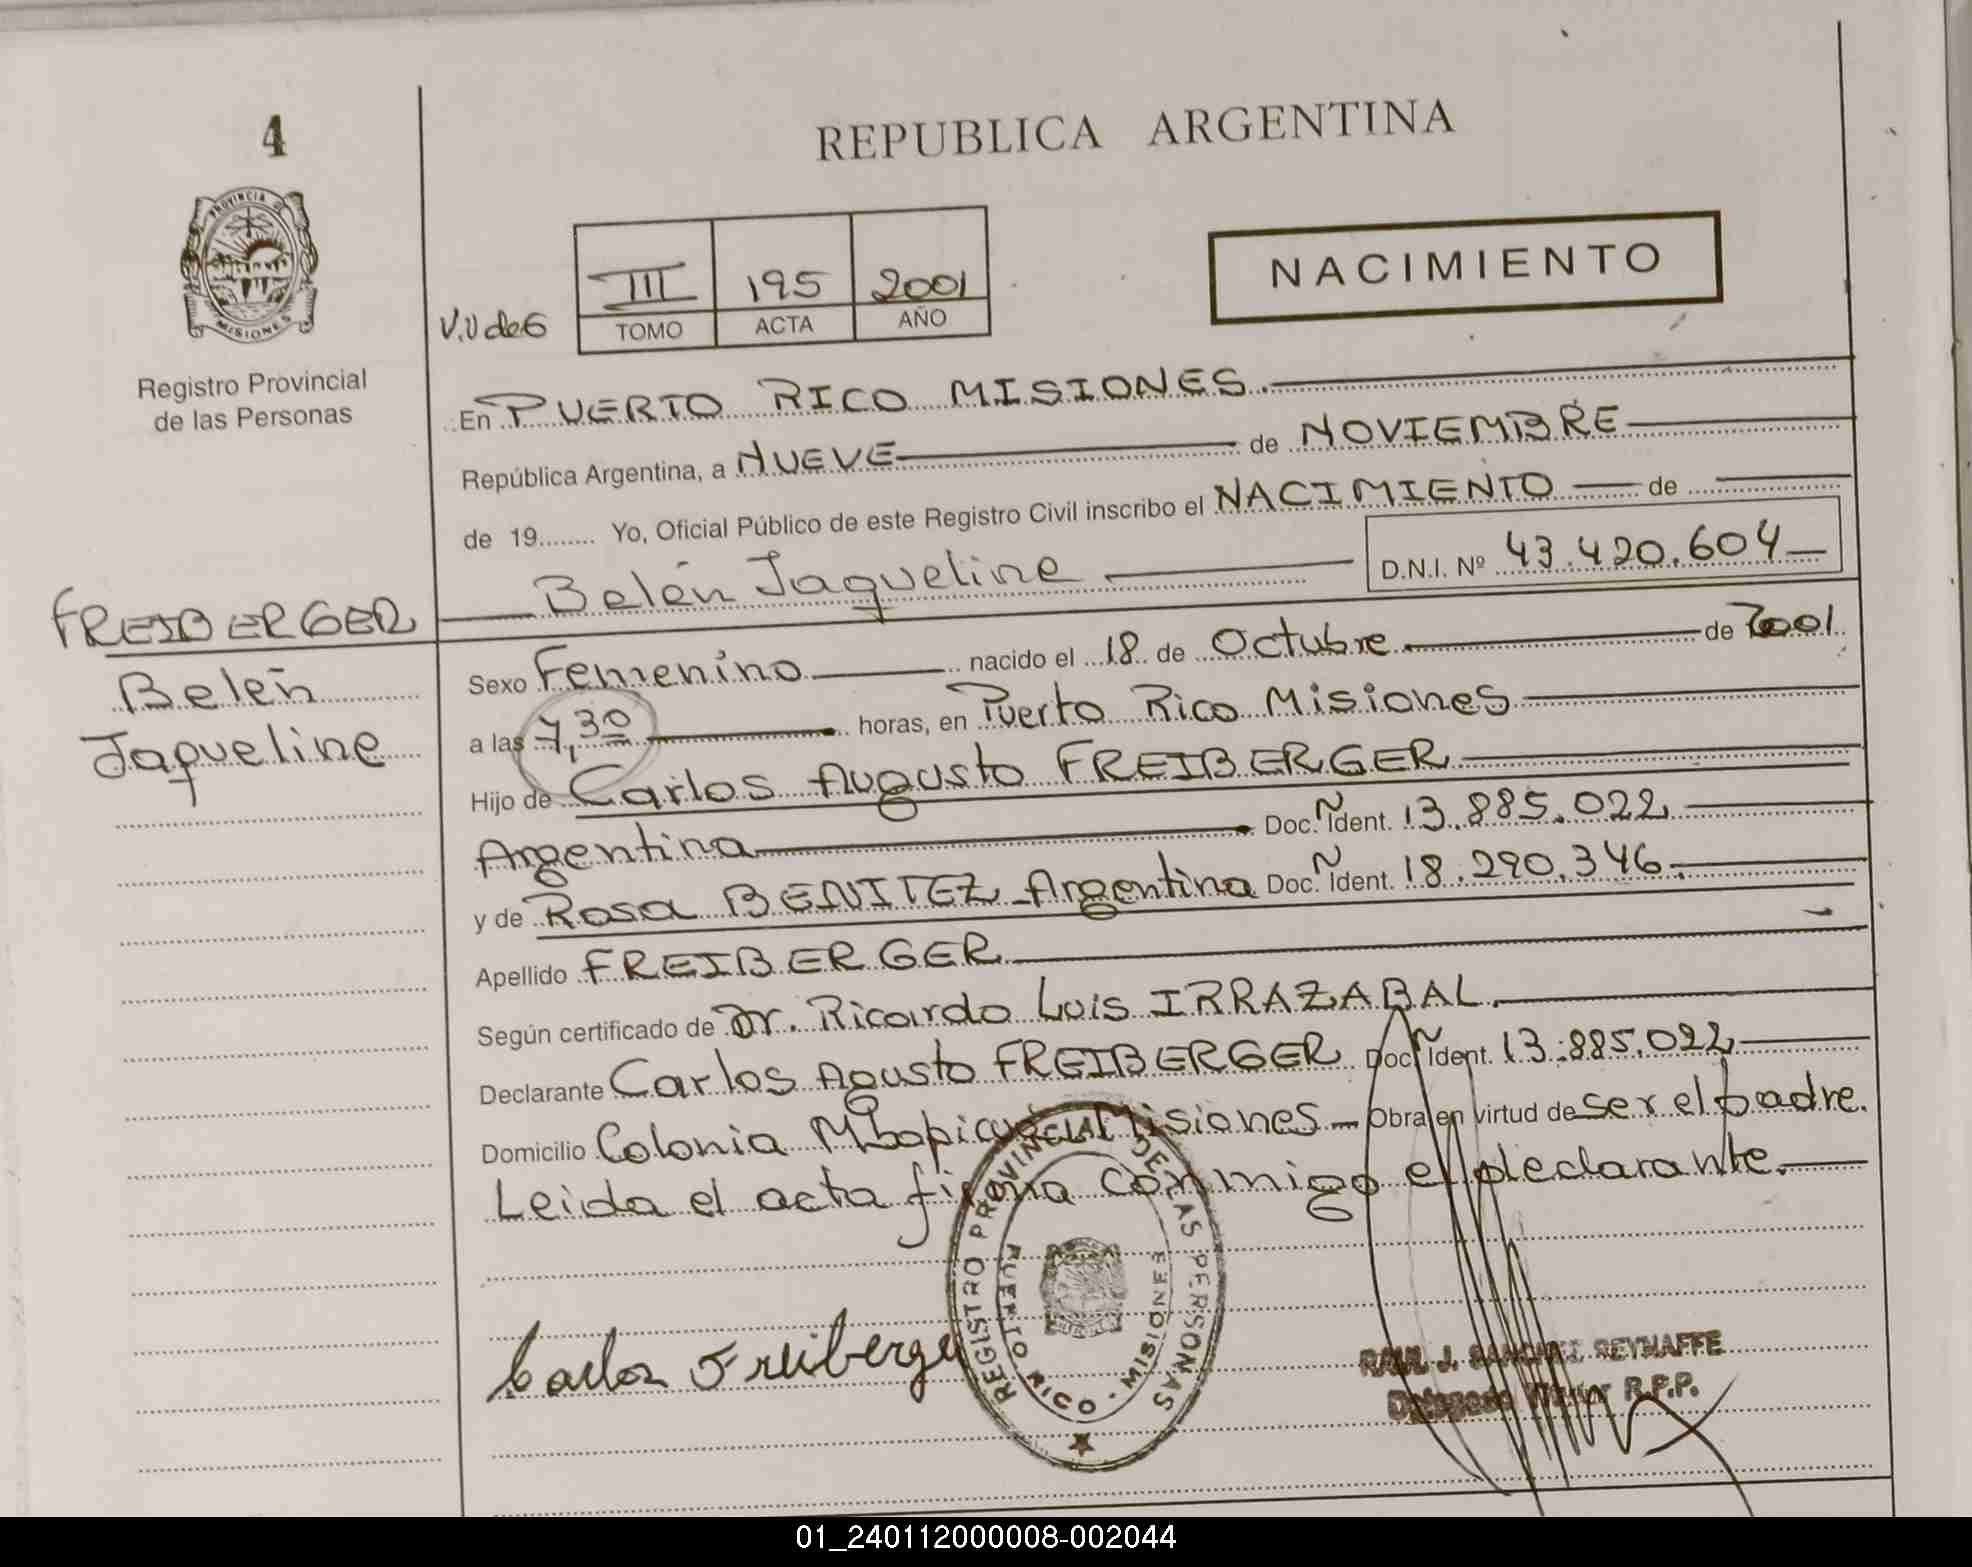 4
REPUBLICA ARGENTINA
PROVINCIA D
MISIONES
Registro Provincial
de las Personas
III 195 2001
TOMO ACTA AÑO
NACIMIENTO
V.V de 6
En PUERTO RICO MISIONES.
República Argentina, a NUEVE de NOVIEMBRE
de 19........ Yo, Oficial Público de este Registro Civil inscribo el NACIMIENTO de
Belén Jaqueline D.N.I. Nº 43.420.604
FREIBERGER
Belén
Jaqueline
Sexo Femenino nacido el 18 de Octubre de 2001
a las 7,30 horas, en Puerto Rico Misiones
Hijo de Carlos Augusto FREIBERGER
Argentina Doc. Ident. 13.885.022
y de Rosa BENITEZ - Argentina Doc. Ident. 18.290.346.
Apellido FREIBERGER
Según certificado de Dr. Ricardo Luis IRRAZABAL.
Declarante Carlos Agusto FREIBERGER Doc. Ident. 13.885.022
Domicilio Colonia Misiones Obra en virtud de ser el padre.
Leida el acta firma conmigo el declarante.
Carlos Freiberger
REGISTRO PROVINCIAL DE LAS PERSONAS
PUERTO RICO - MISIONES
RAUL J. REYNAFFE
R.P.P.
01_240112000008-002044